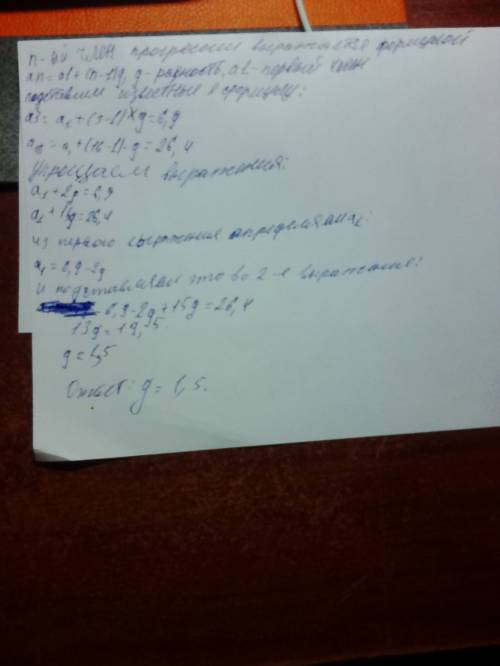 n-ый член прогрессии выражается формулой
an = a1 + (n-1)g, g - разность, a1 - первый член
подставим известные в формулу:
a3 = a1 + (3-1)×g = 6,9
a16 = a1 + (16-1)·g = 26,4
Упрощаем выражения:
a1 + 2g = 6,9
a1 + 15g = 26,4
из первого выражения определяем a1:
a1 = 6,9 - 2g
и подставляем это во 2-е выражение:
6,9 - 2g + 15g = 26,4
13g = 19,5
g = 1,5
Ответ: g = 1,5.